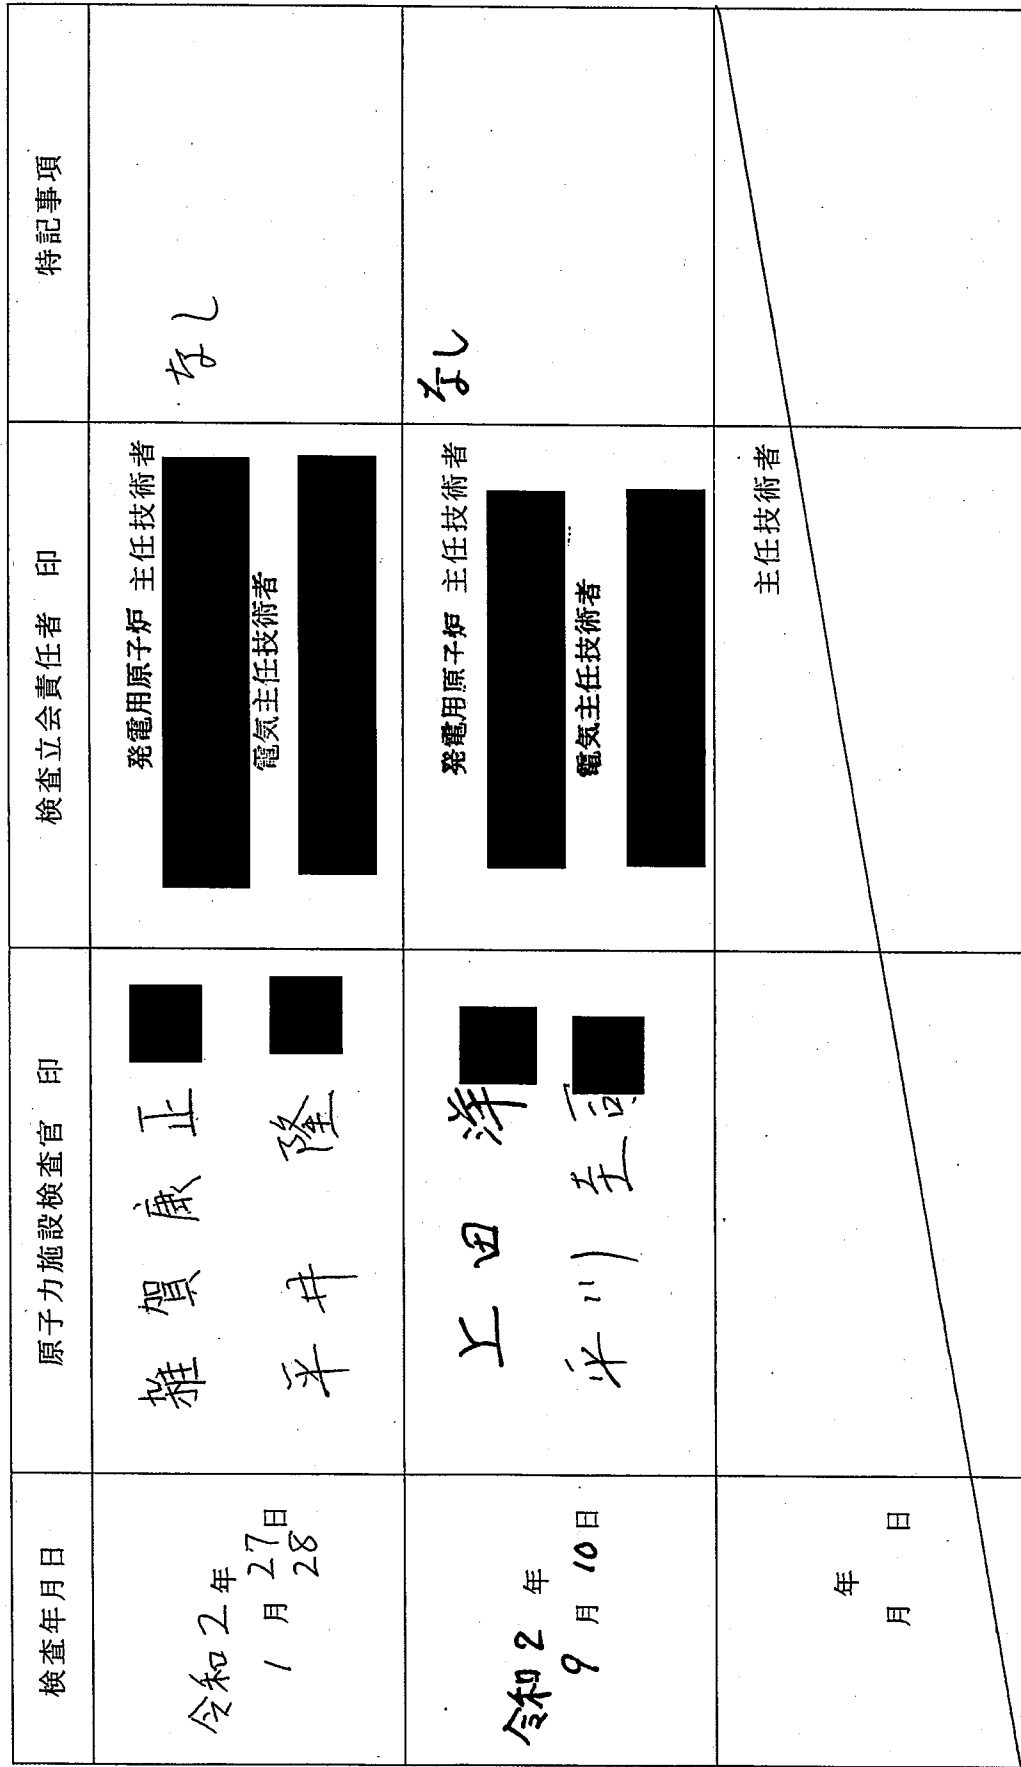 検査年月日
原子力施設検査官 印
検査立会責任者 印
特記事項
令和2年
1月27日
28
雑賀康正
平井隆
発電用原子炉 主任技術者
電気主任技術者
なし
令和2年
9月10日
上田洋
米川至司
発電用原子炉 主任技術者
電気主任技術者
なし
年
月 日
主任技術者